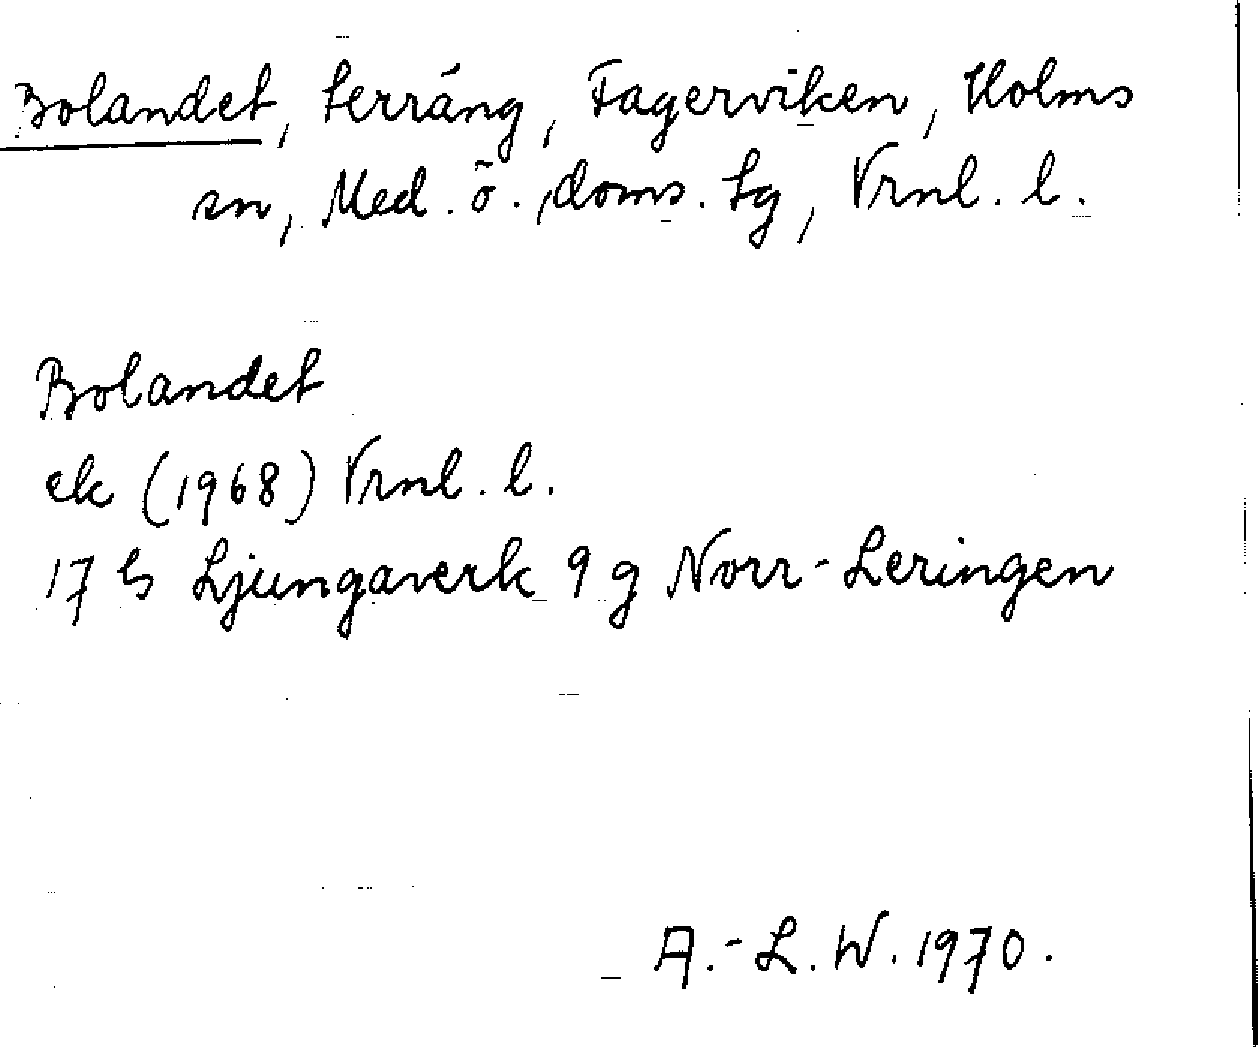 Bolandet, terräng, Fagerviken, Holms
sn, Med. ö. doms. tg, Vrnl. l.
Bolandet
ek (1968) Vrnl. l.
17 h Ljungaverk 9 g Norr-Leringen
A.-L. W. 1970.